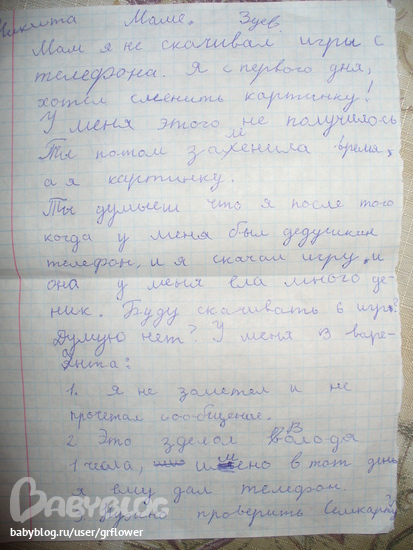 Никита Маме. Здев
Мам я не скачивал игры с
телефона. Я с первого дня,
хотел сменить картинку!
У меня этого не получилось
Ты потом заменила время,
а я картинку.
Ты думыеш что я после того
когда у меня был дедушкин
телефон, и я скачал игру, и
она у меня ела много де-
ник. Буду скачивать 6 игр?
Думую нет? У меня 3 варе-
анта:
1. Я не заметел и не
прочетал сообщение.
2 Это зделал Волода
1 чеала, имено в тот день
я ему дал телефон.
3. Нужно проверить Симкарту
BABYBLOG
babyblog.ru/user/grflower